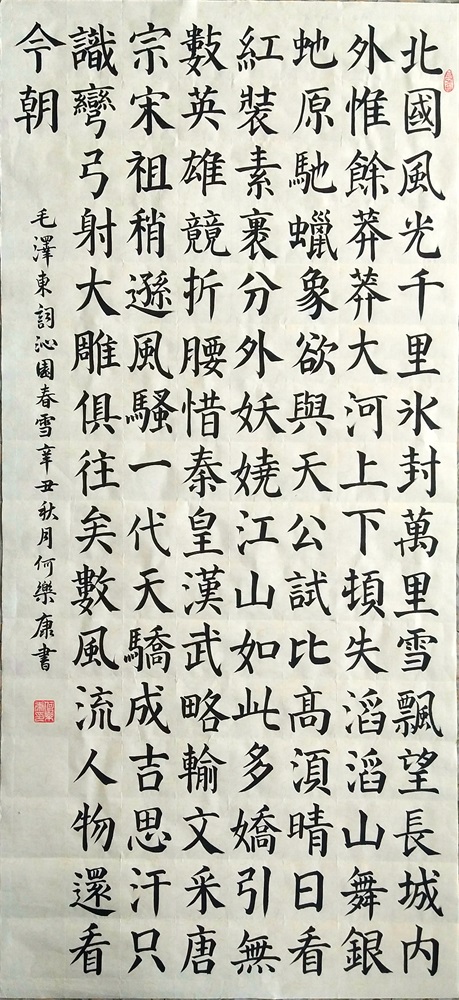 北國風光千里氷封萬里雪飄望長城内
外惟餘莽莽大河上下頓失滔滔山舞銀
虵原馳蠟象欲與天公試比髙湏晴日看
紅裝素裹分外妖嬈江山如此多嬌引無
數英雄競折腰惜秦皇漢武略輸文采唐
宗宋祖稍遜風騷一代天驕成吉思汗只
識彎弓射大雕俱往矣數風流人物還看
今朝
毛澤東詞沁園春雪辛丑秋月何樂康書